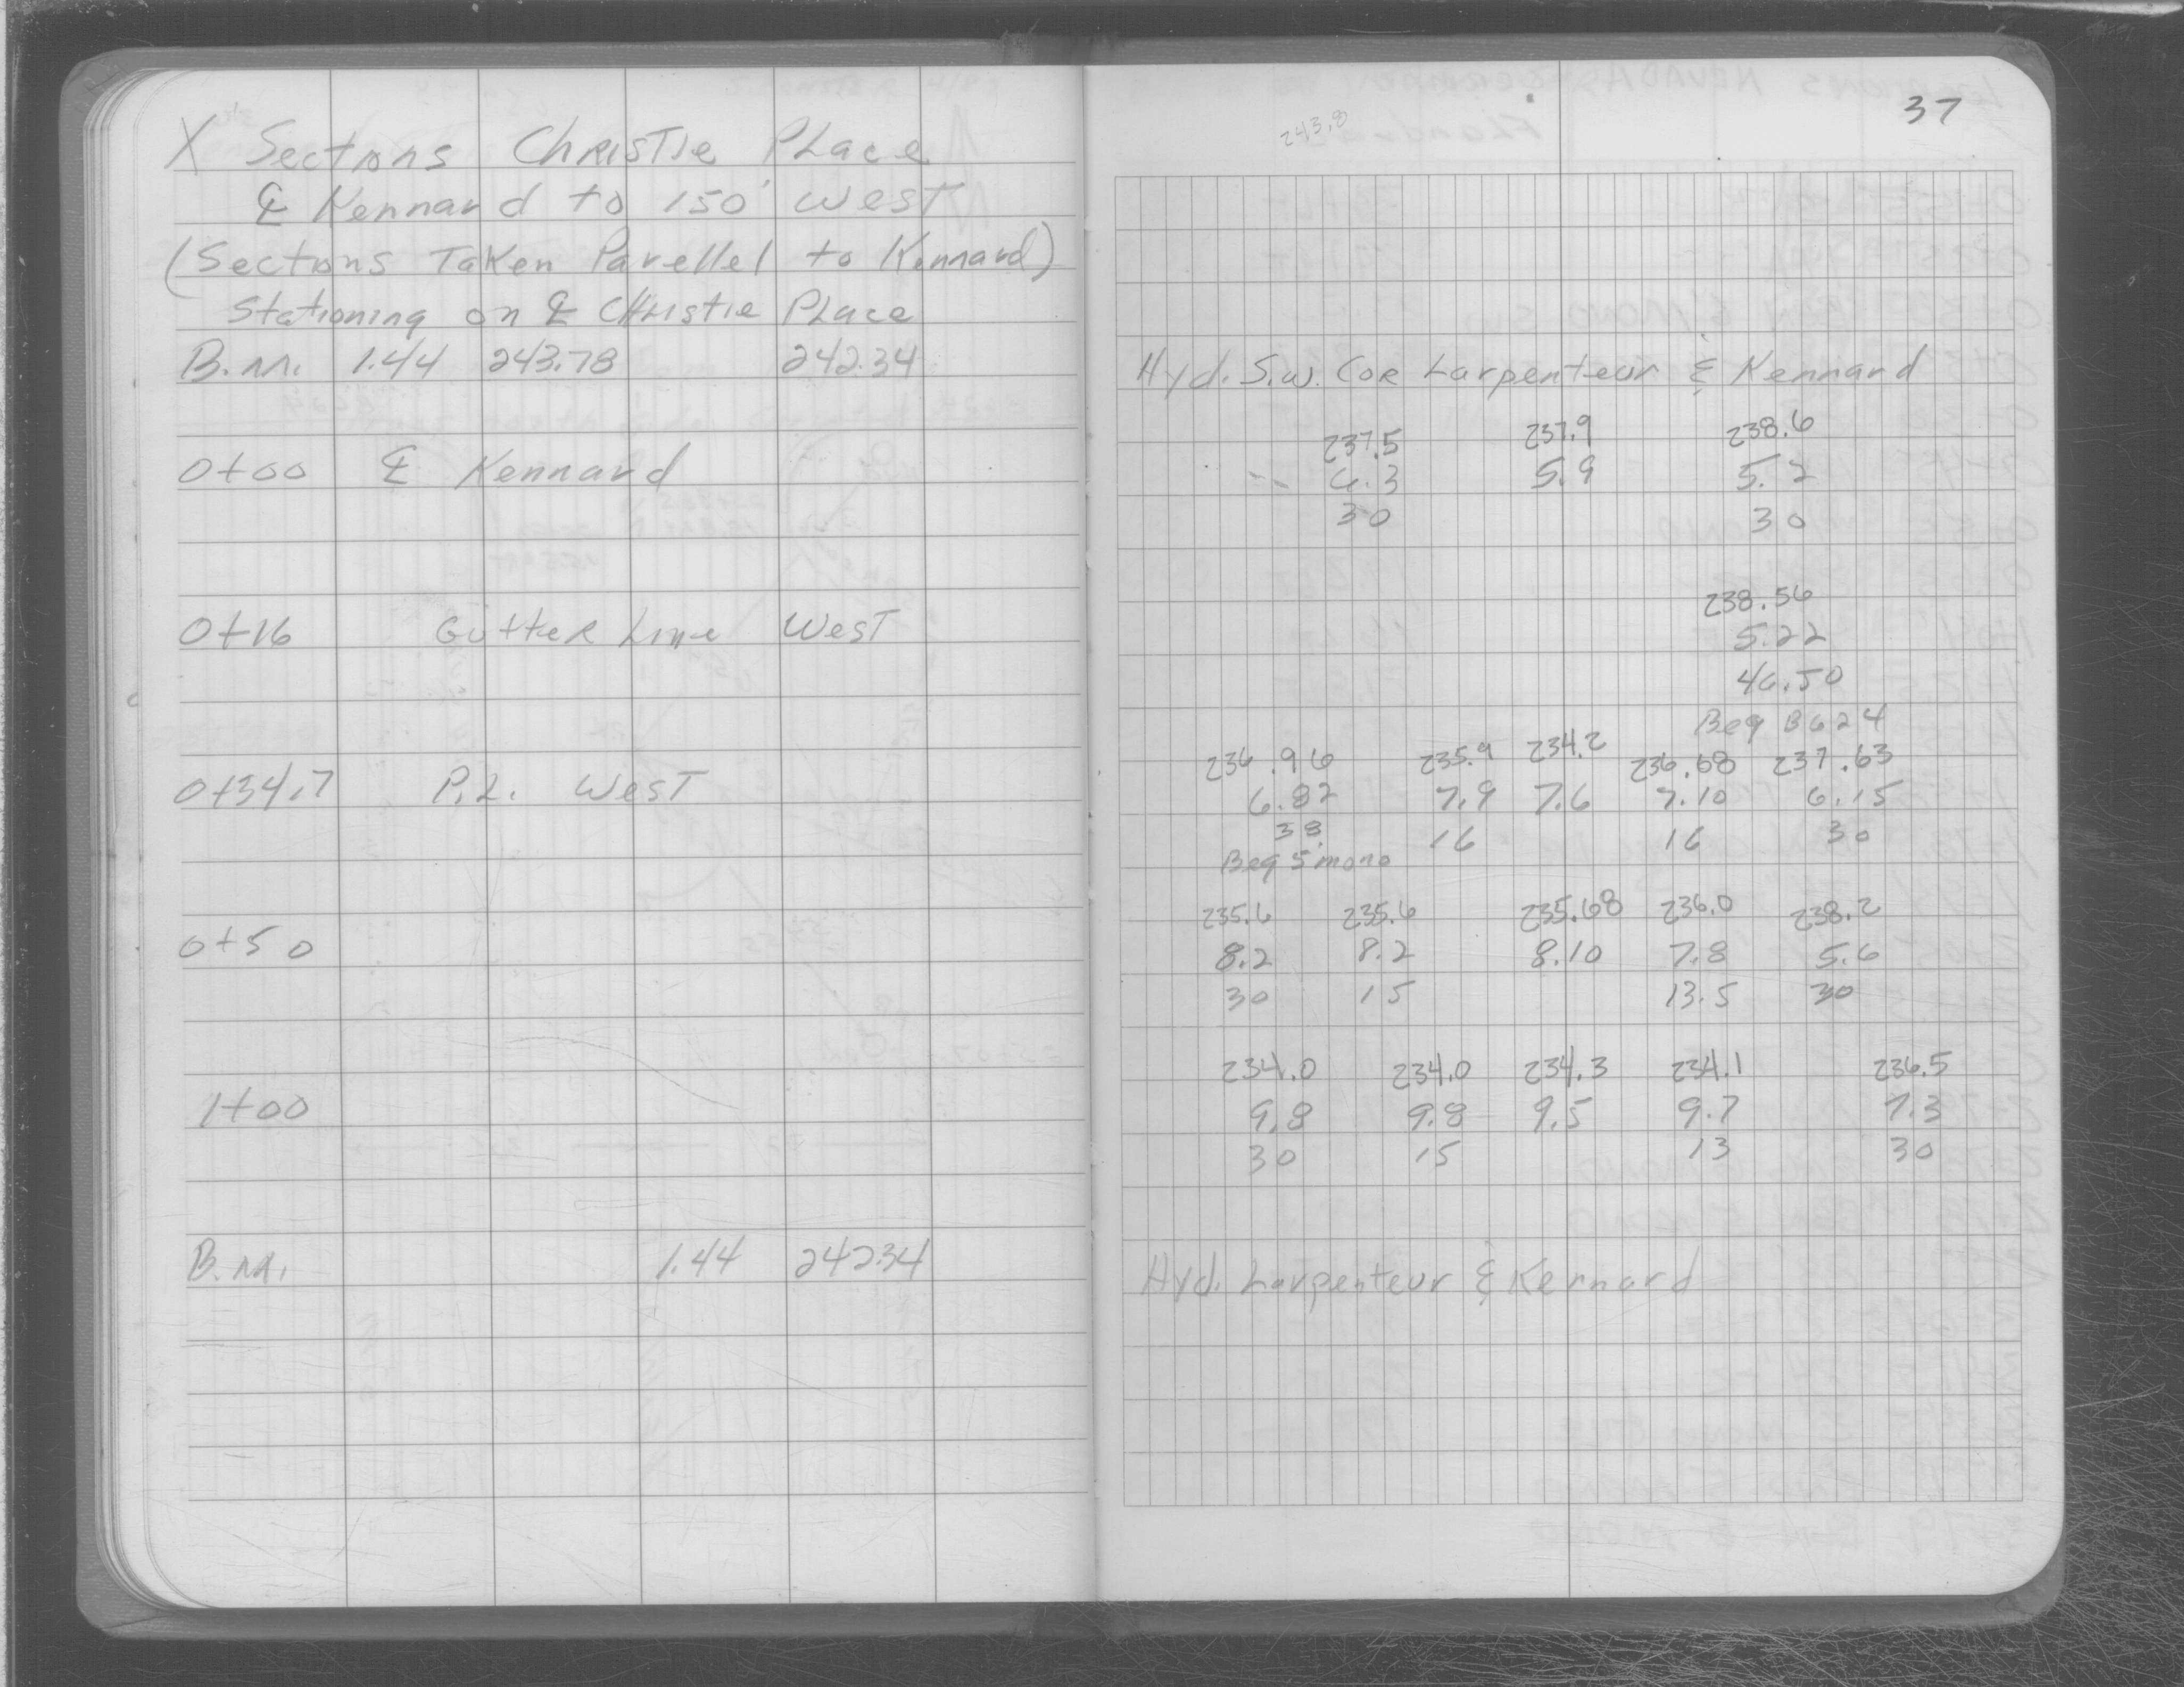 X Sections Christie Place
℄ Kennard to 150' West
(Sections Taken Parellel to Kennard)
Stationing on ℄ Christie Place
B.M. 1.44 243.78 242.34
0+00 ℄ Kennard
0+16 Gutter Line West
0+34.7 P.L. West
0+50
1+00
B.M. 1.44 242.34
37
243.8
Hyd. S.W. Cor Larpenteur & Kennard
237.5 237.9 238.6
6.3 5.9 5.2
30 30
238.56
5.22
46.50
Beg B624
236.96 235.9 234.2 236.68 237.63
6.82 7.9 7.6 7.10 6.15
38 16 16 30
Beg 5' mono
235.6 235.6 235.68 236.0 238.2
8.2 8.2 8.10 7.8 5.6
30 15 13.5 30
234.0 234.0 234.3 234.1 236.5
9.8 9.8 9.5 9.7 7.3
30 15 13 30
Hyd. Larpenteur & Kennard